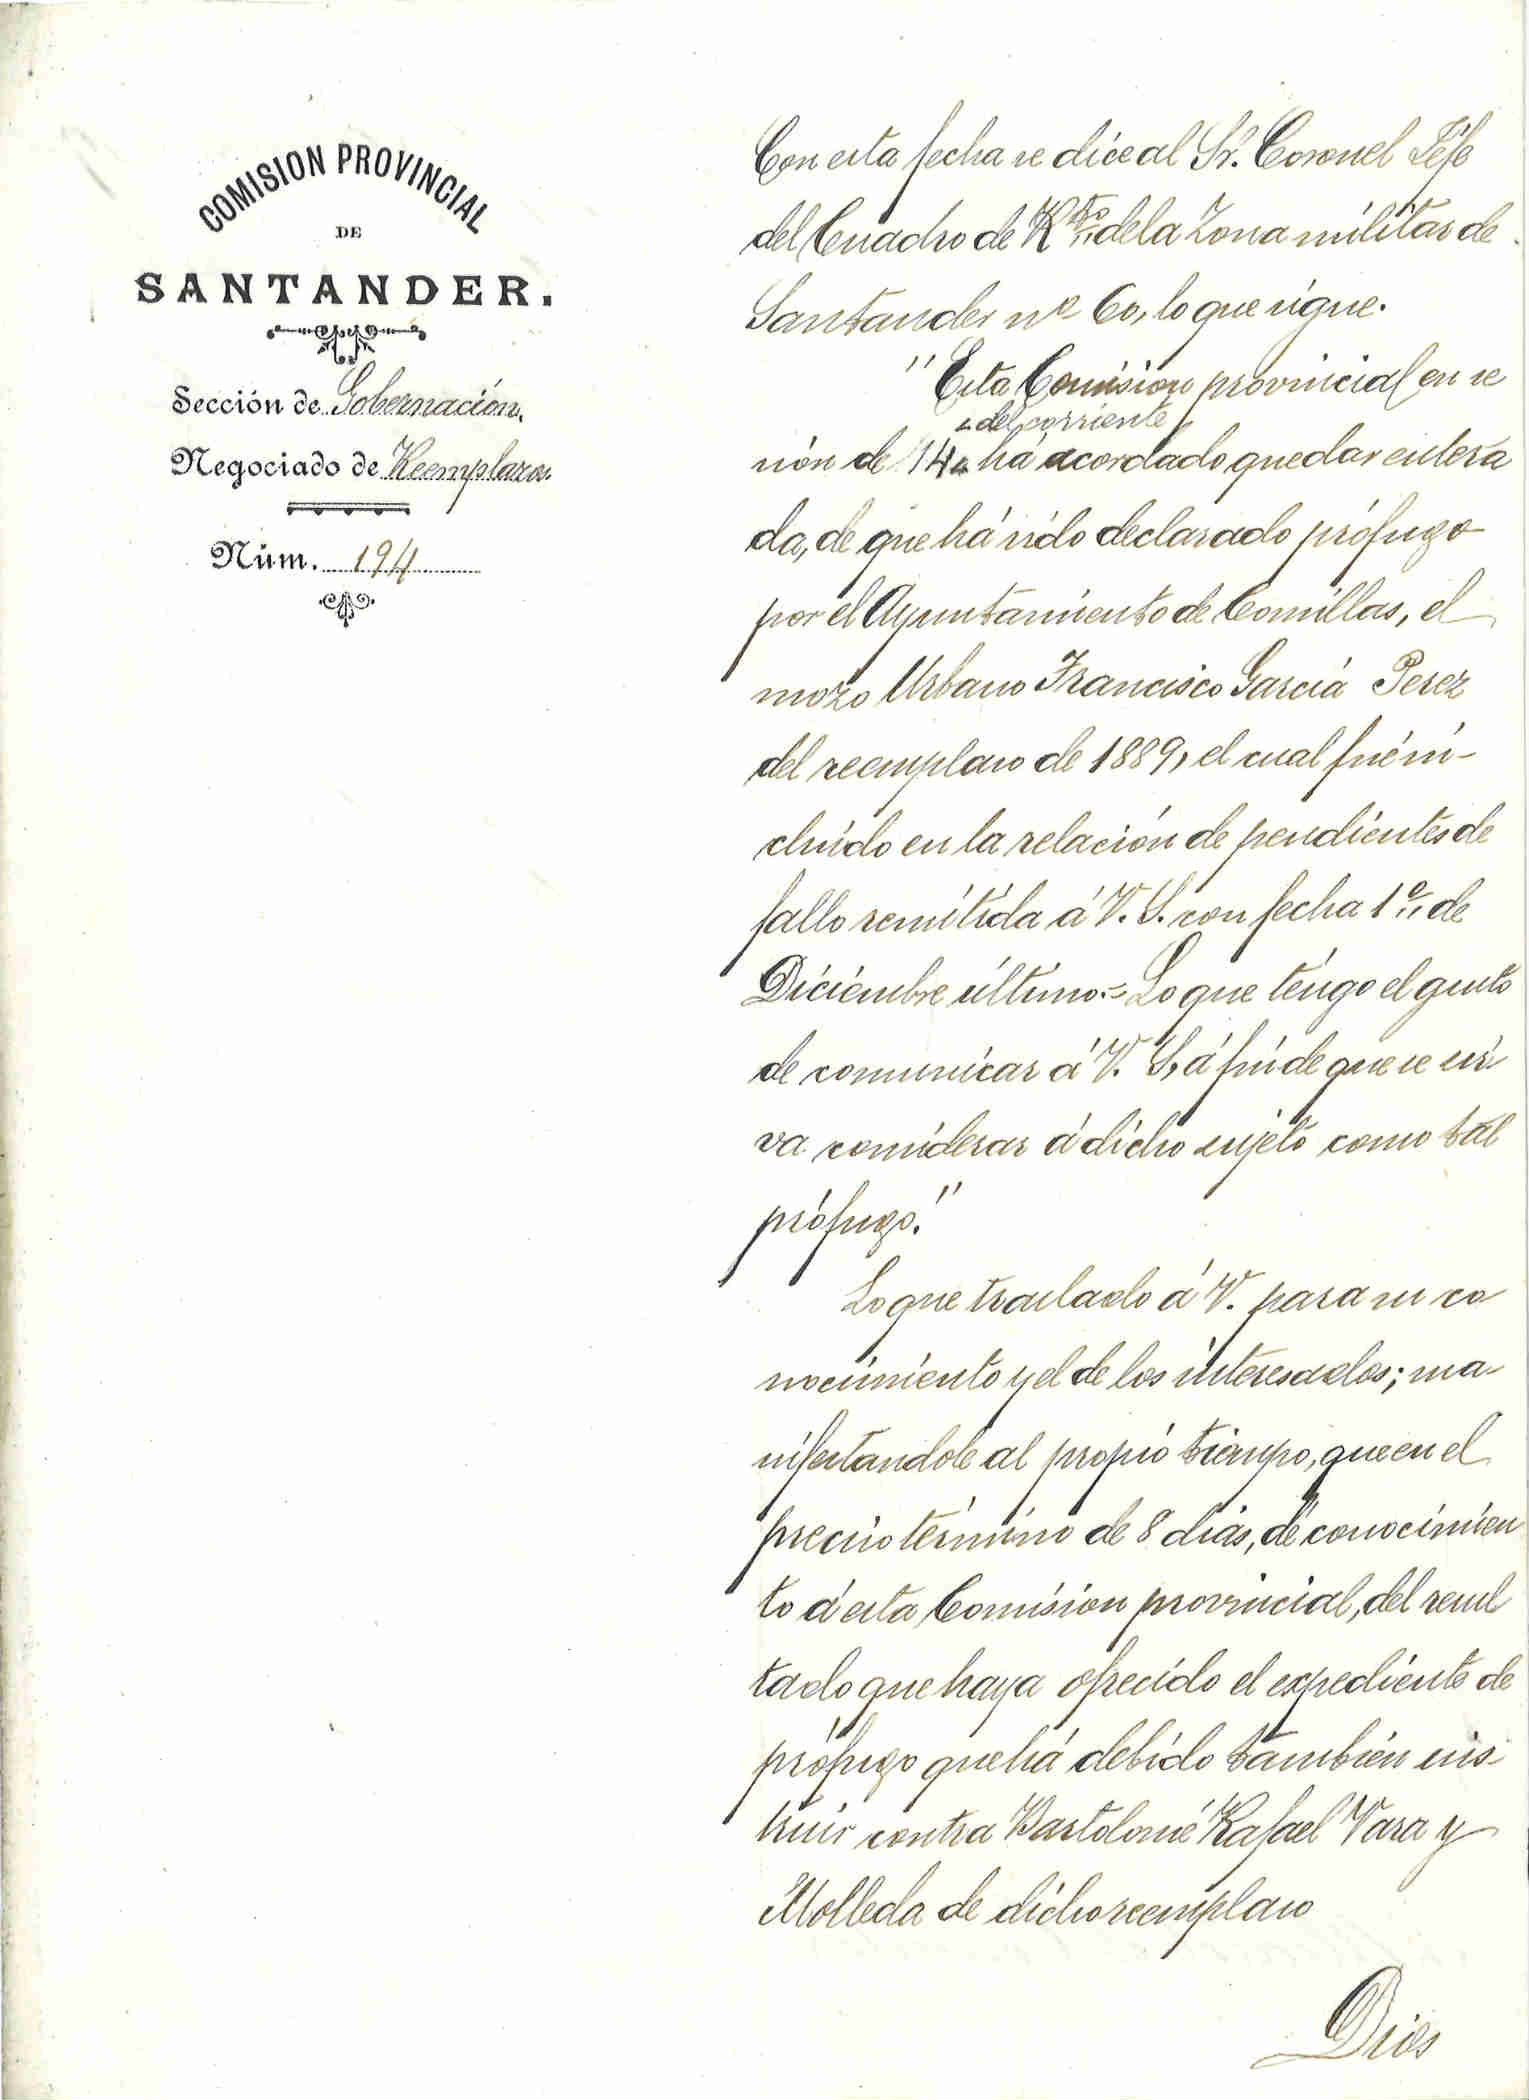 COMISION PROVINCIAL
DE
SANTANDER.
Sección de Gobernación.
Negociado de Reemplazos.
Núm. 194
Con esta fecha se dice al Sr. Coronel Jéfe
del Cuadro de Rto. de la Zona militar de
Santander nº 60, lo que sigue.
"Esta Comision provincial en se
del corriente
sión de 14 há acordado quedar entera
da, de que há sido declarado prófugo
por el Ayuntamiento de Comillas, el
mozo Urbano Francisco Garcia Perez
del reemplazo de 1889, el cual fué in-
cluido en la relación de pendientes de
fallo remitida á V. S. con fecha 1º de
Diciembre último.= Lo que tengo el gusto
de comunicar á V. S, á fin de que se sir
va considerar á dicho sujeto como tal
prófugo."
Lo que traslado á V. para su co
nocimiento y el de los interesados; ma-
nifestandole al propio tiempo, que en el
preciso término de 8 dias, dé conocimien
to á esta Comision provincial, del resul
tado que haya ofrecido el expediente de
prófugo que há debido tambien ins-
truir contra Bartolomé Rafael Vara y
Molleda de dicho reemplazo
Dios